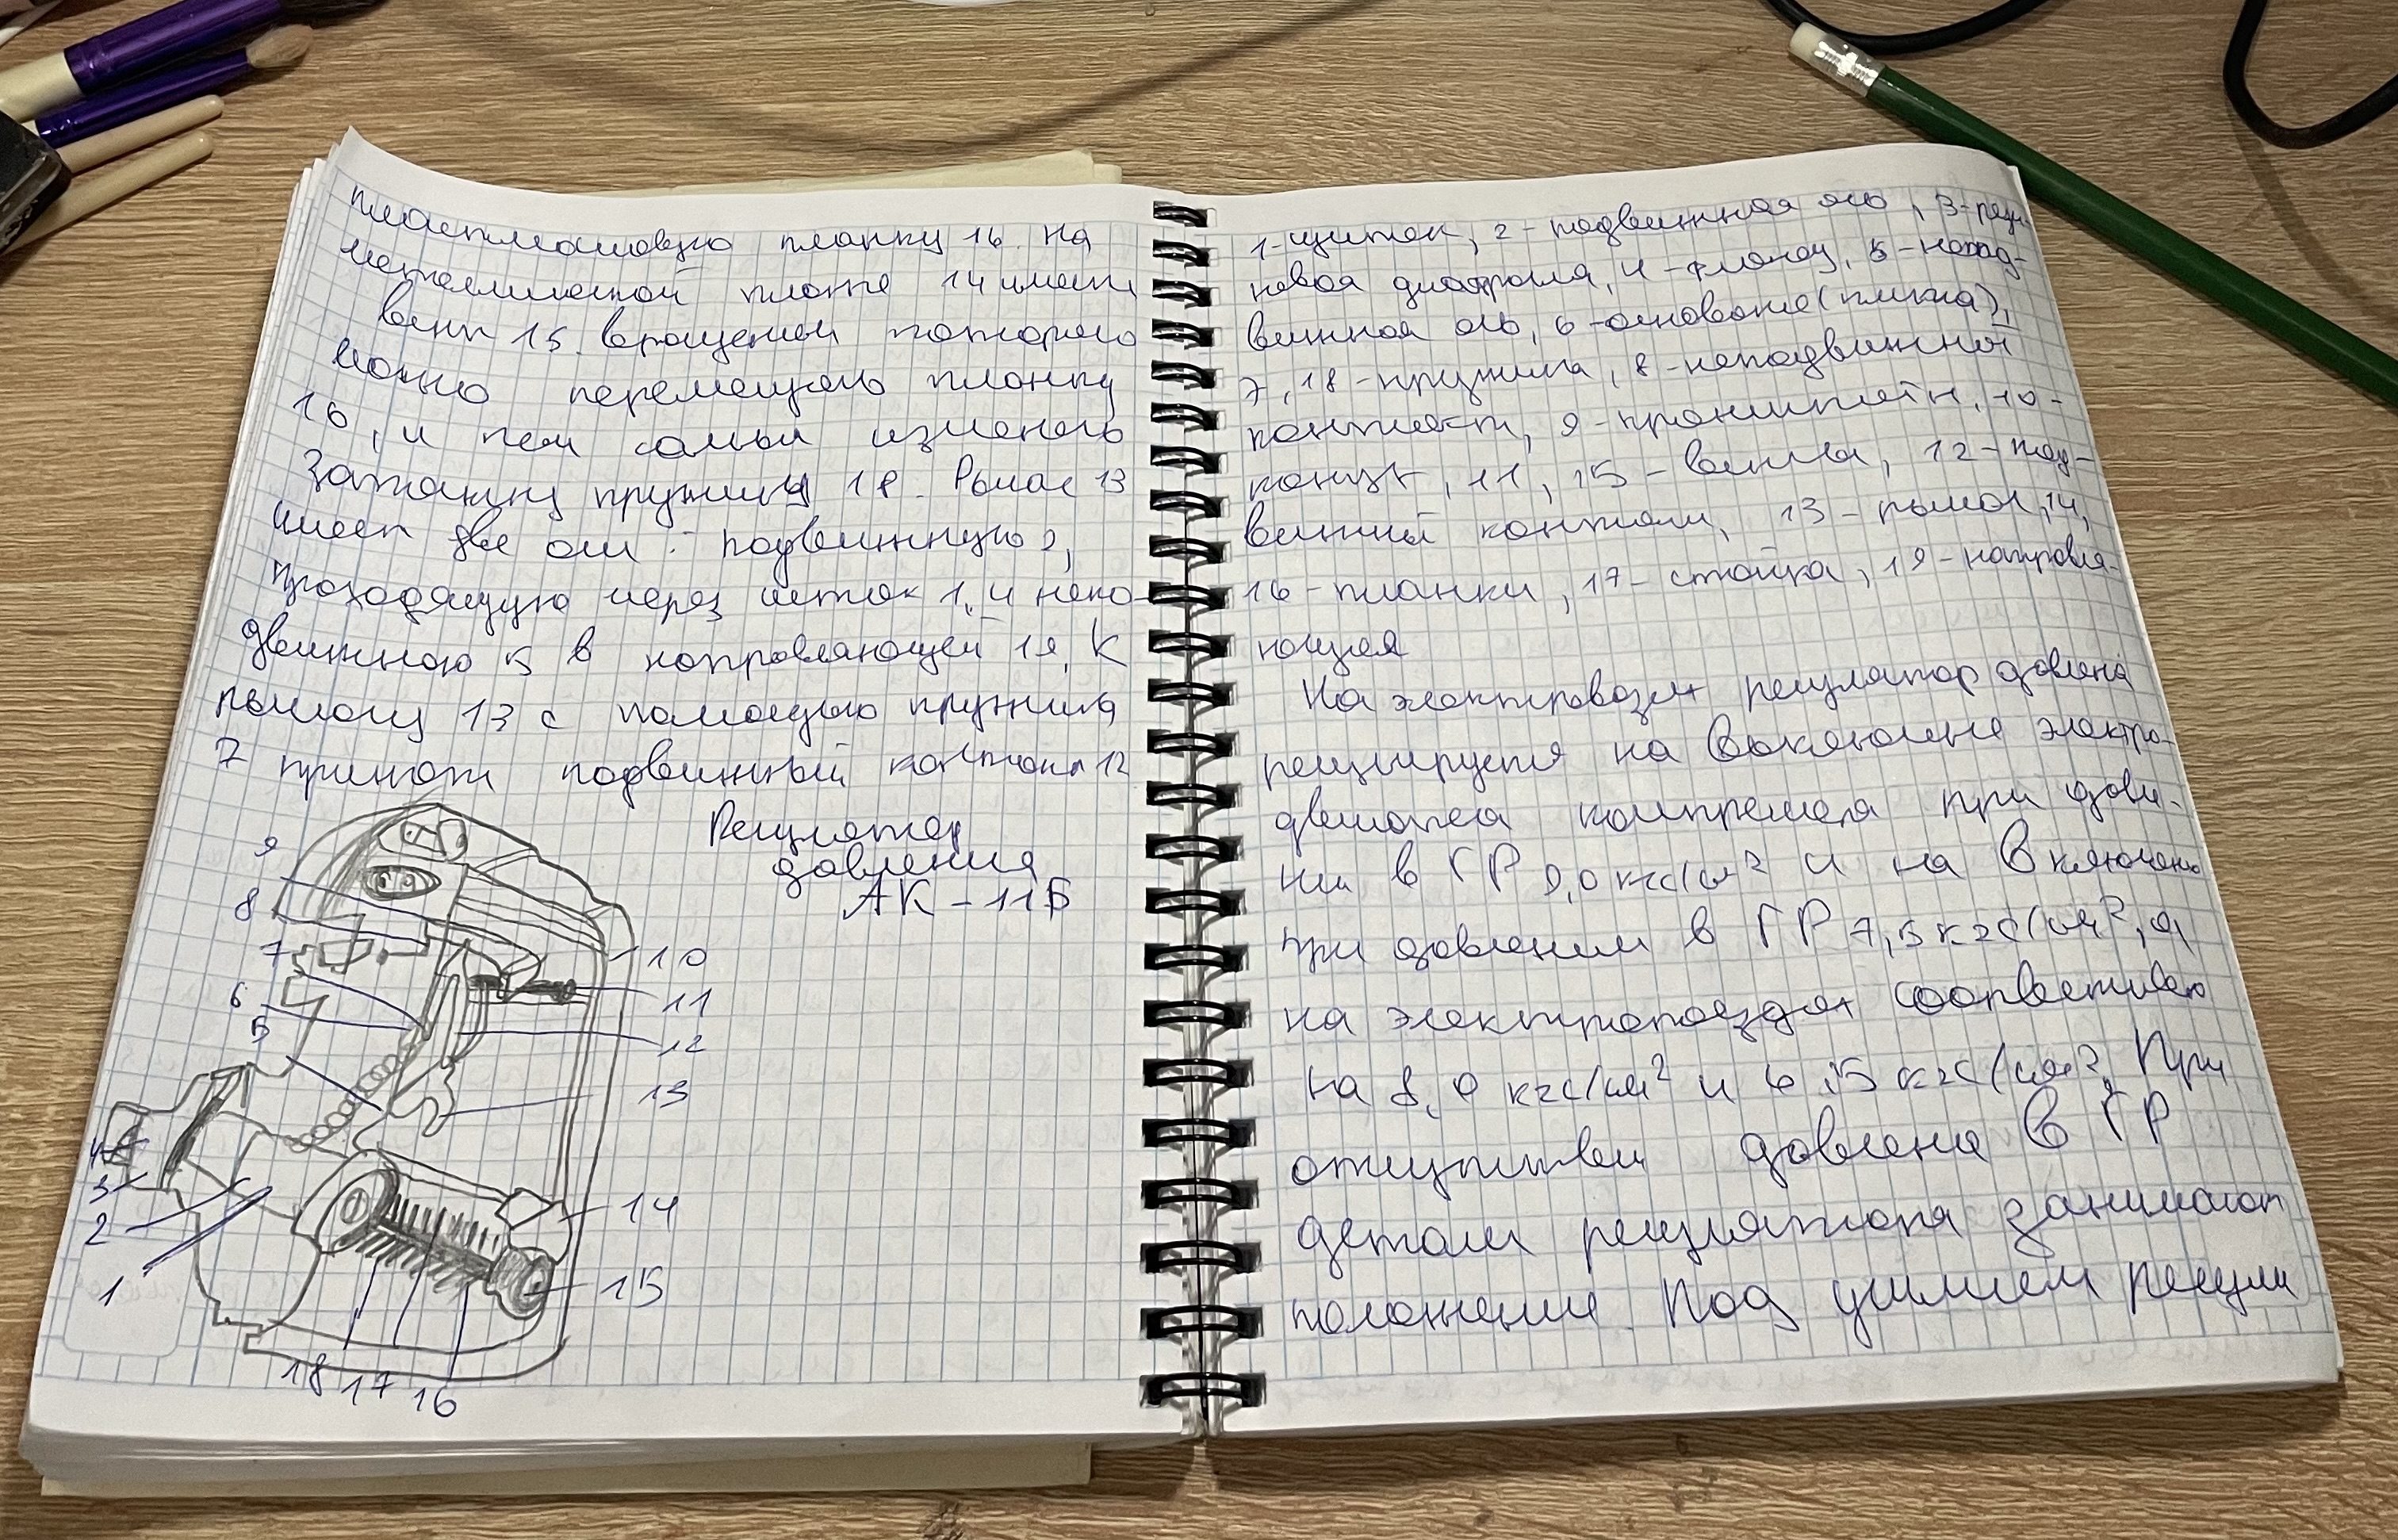 пластмассовую планку 16. На
металлической планке 14 имеет
винт 15. вращением которого
можно перемещать планку
16, и тем самым изменать
Затяжку пружины 18. Рычаг 13
имеет две оси: подвижную 2,
проходящую через шток 1, и непо-
движною 5 в направляющей 19, К
рычагу 13 с помощью пружина
7 прижат подвижный контакт 12
Регулятор
давления
АК-11Б
9
8
7
6
5
4
3
2
1
10
11
12
13
14
15
18 17 16
1-щиток, 2-подвижная ось, 3-рези-
новая диафрагма, 4-фланец, 5-непод-
вижная ось, 6-основание (плита),
7, 18-пружина, 8-неподвижный
контакт, 9-кронштейн, 10-
кожух, 11, 15-винты, 12-под-
вижный контакт, 13-рычаг, 14,
16-планки, 17-стойка, 19-направля-
ющая
На электровозах регулятор давлена
регулируется на выключение электро-
двигателя компрессора при давле-
нии в ГР 9,0 кгс/см² и на включено
при давлении в ГР 7,5 кгс/см², а
на электропоездах соответствено
на 8,0 кгс/см² и 6,5 кгс/см². При
отсутствии давлена в ГР
детали регулятора занимают
положение. Под усилием регули